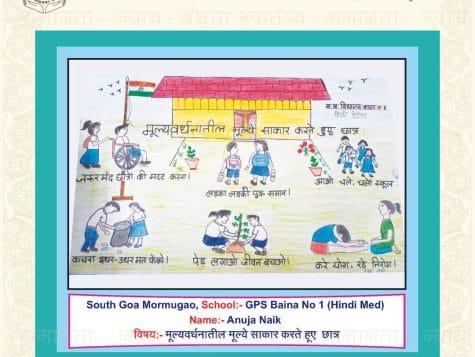 न्याय - बंधता - स्वातंत्र्य - समानता - न्याय
मूल्यवर्धनातील मूल्ये साकार करते हुए छात्र
जरूरमंद छात्रों की मदद करना।
लड़का लड़की एक समान।
आओ चले, चले स्कूल
कचरा इधर-उधर मत फेंको।
पेड़ लगाओ जीवन बचाओ।
करे योग, रहे निरोग।
South Goa Mormugao, School:- GPS Baina No 1 (Hindi Med)
Name:- Anuja Naik
विषय:- मूल्यवर्धनातील मूल्ये साकार करते हूए छात्र